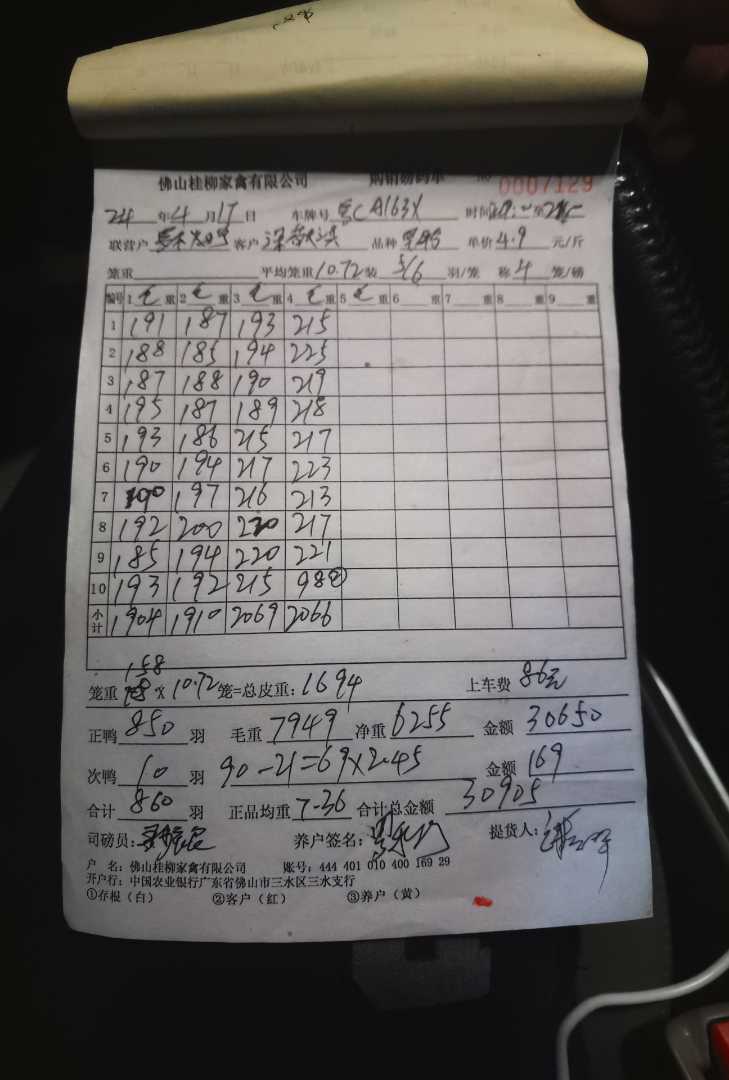 佛山桂柳家禽有限公司 购销磅码单 No 0007129
24 年 4 月 17 日 车牌号 粤CA163X 时间 至
联营户 客户 品种 单价 4.9 元/斤
笼重 平均笼重 10.72 装 5/6 羽/笼 称 4 笼/磅
编号 1 毛 重 2 毛 重 3 毛 重 4 毛 重 5 毛 重 6 重 7 重 8 重 9 重
1 191 187 193 215
2 188 185 194 225
3 187 188 190 219
4 195 187 189 218
5 193 186 215 217
6 190 194 217 223
7 190 197 216 213
8 192 200 220 217
9 185 194 220 221
10 193 192 215 98②
小计 1904 1910 2069 2066
158
笼重 x 10.72 笼=总皮重: 1694 上车费 86元
正鸭 850 羽 毛重 7949 净重 6255 金额 30650
次鸭 10 羽 90-21=69x2.45 金额 169
合计 860 羽 正品均重 7.36 合计总金额 30905
司磅员: 养户签名: 提货人:
户 名: 佛山桂柳家禽有限公司 账号: 444 401 010 400 169 29
开户行: 中国农业银行广东省佛山市三水区三水支行
①存根（白） ②客户（红） ③养户（黄）